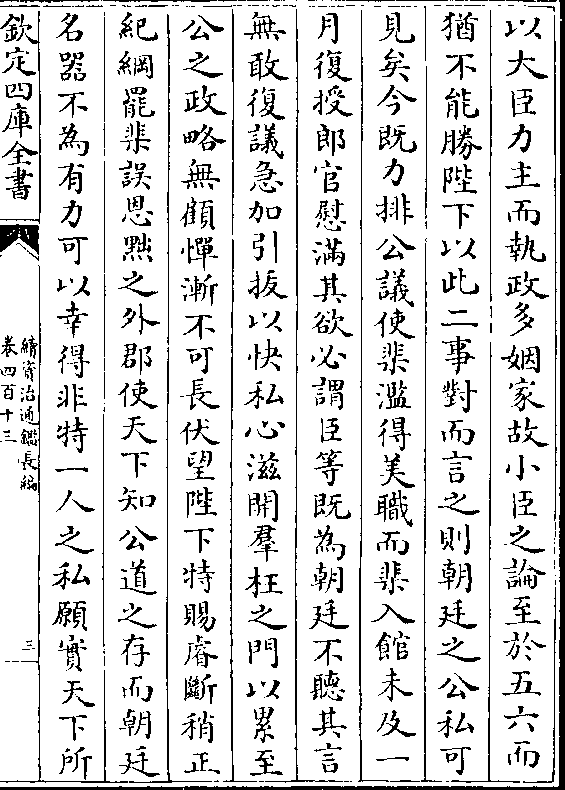 以大臣力主而執政多姻家故小臣之論至於五六而
猶不能勝陛下以此二事對而言之則朝廷之公私可
見矣今既力排公議使棐濫得美職而棐入館未及一
月復授郎官慰滿其欲必謂臣等既為朝廷不聽其言
無敢復議急加引拔以快私心滋開羣枉之門以累至
公之政略無顧憚漸不可長伏望陛下特賜睿斷稍正
紀綱罷棐誤恩黜之外郡使天下知公道之存而朝廷
名器不為有力可以幸得非特一人之私願實天下所
欽定四庫全書
續資治通鑑長編
卷四百十三
三